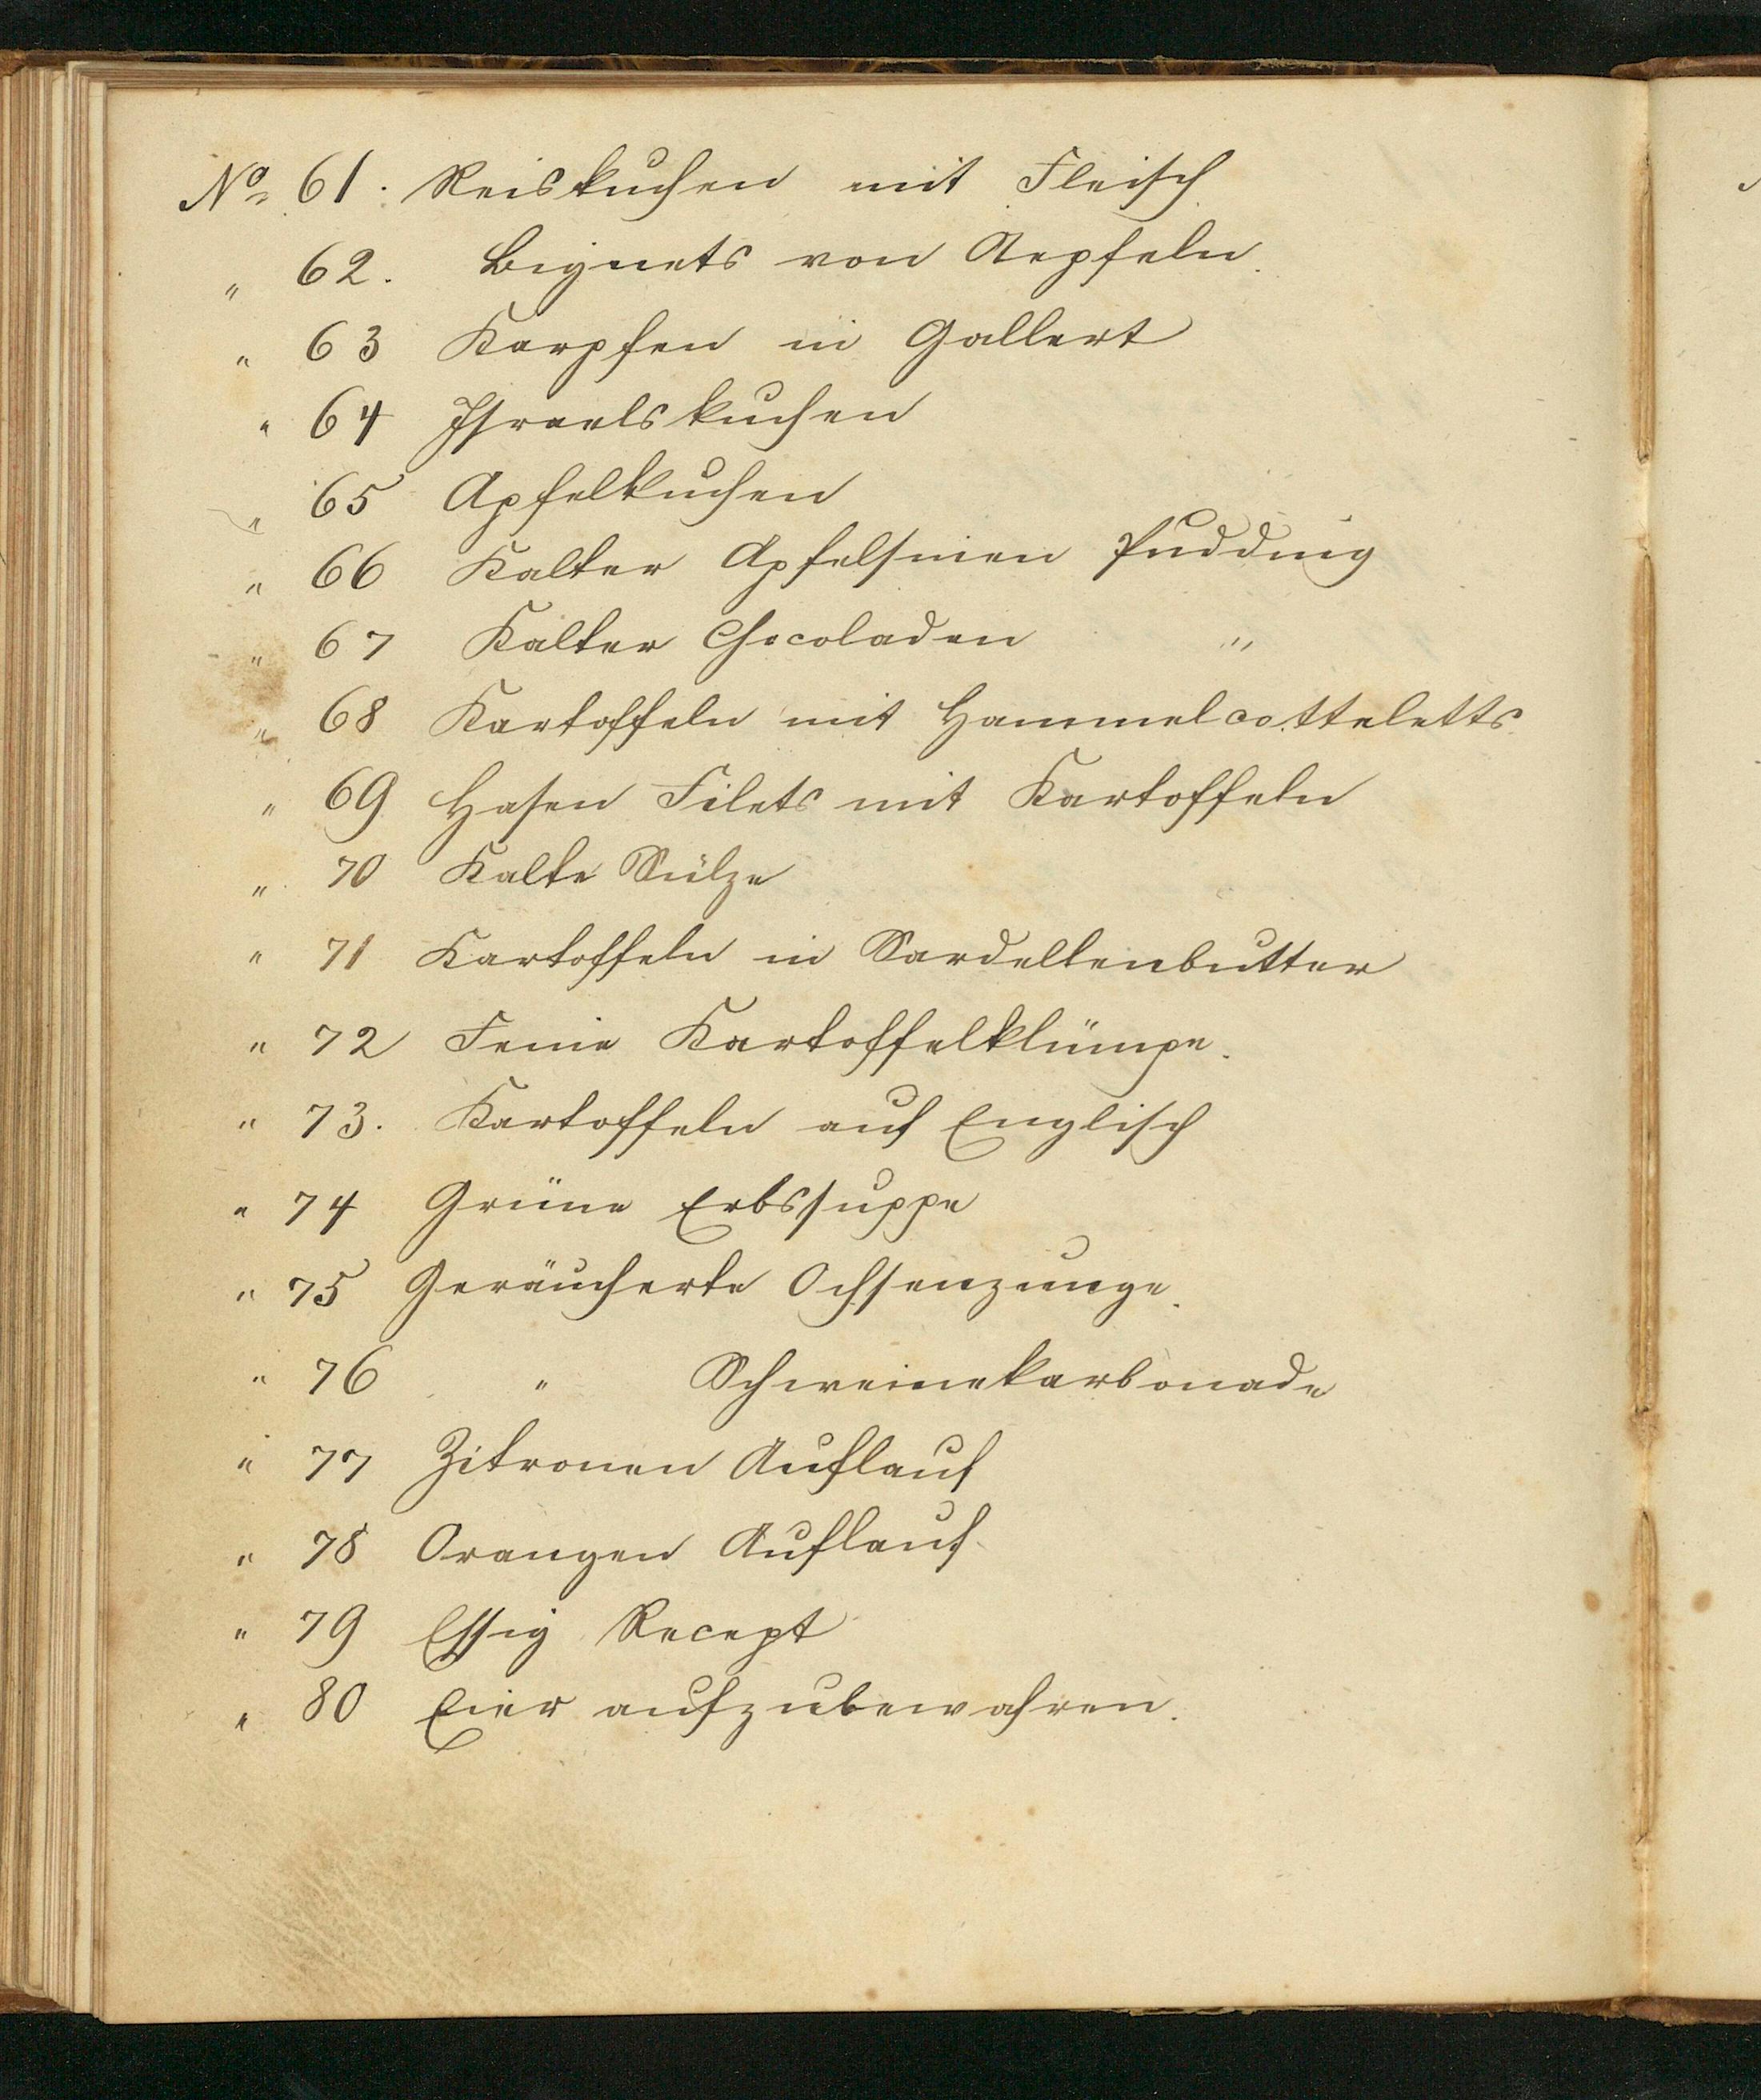 No 61. Reiskuchen mit Fleisch
" 62. Bignets von Aepfeln.
" 63 Karpfen in Gallert
" 64 Israelskuchen
" 65 Apfelkuchen
" 66 Kalter Apfelsinen Pudding
" 67 Kalter Chocoladen "
" 68 Kartoffeln mit Hammelcotteletts
" 69 Hasen Filets mit Kartoffeln
" 70 Kalte Sülze
" 71 Kartoffeln in Sardellenbutter
" 72 Feine Kartoffelklümpe.
" 73. Kartoffeln auf Englisch
" 74 Grüne Erbssuppe
" 75 Geräucherte Ochsenzunge.
" 76 " Schweinekarbonade
" 77 Zitronen Auflauf
" 78 Orangen Auflauf
" 79 Essig Recept
" 80 Eier aufzubewahren.